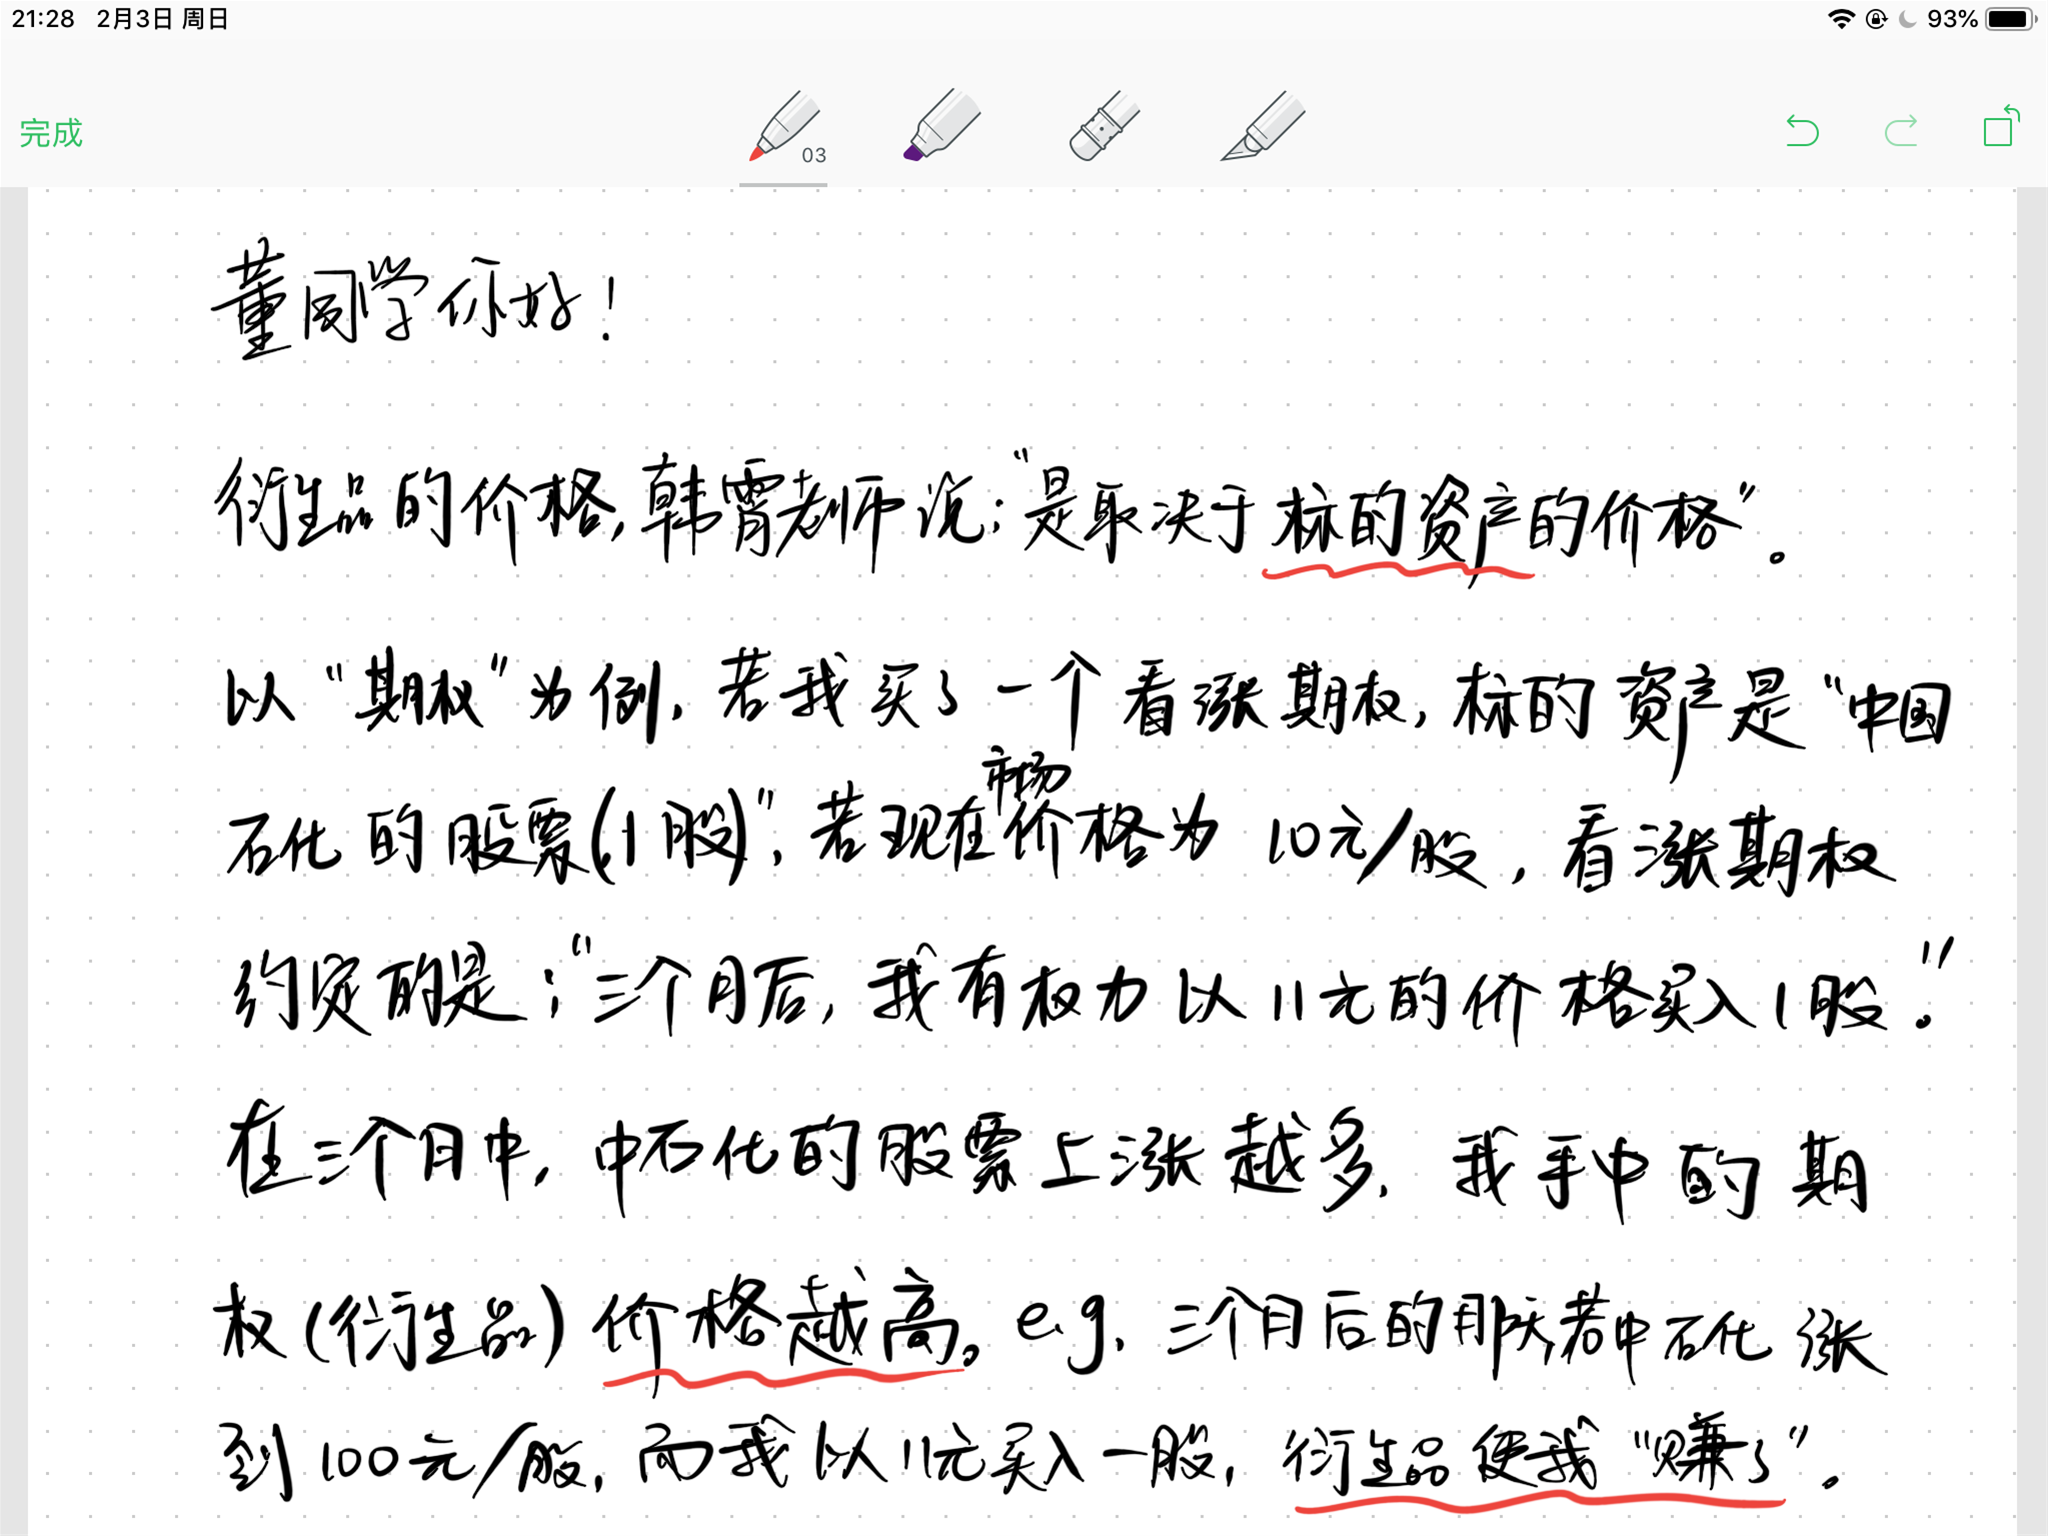 21:28 2月3日 周日 93%
完成 03
董同学你好！
衍生品的价格，韩霄老师说："是取决于标的资产的价格"。
以"期权"为例，若我买了一个看涨期权，标的资产是"中国
石化的股票(1股)"，若现在市场价格为10元/股，看涨期权
约定的是："三个月后，我有权力以11元的价格买入1股。"
在三个月中，中石化的股票上涨越多，我手中的期
权(衍生品)价格越高。e.g. 三个月后的那天,若中石化涨
到100元/股，而我以11元买入一股，衍生品使我"赚了"。